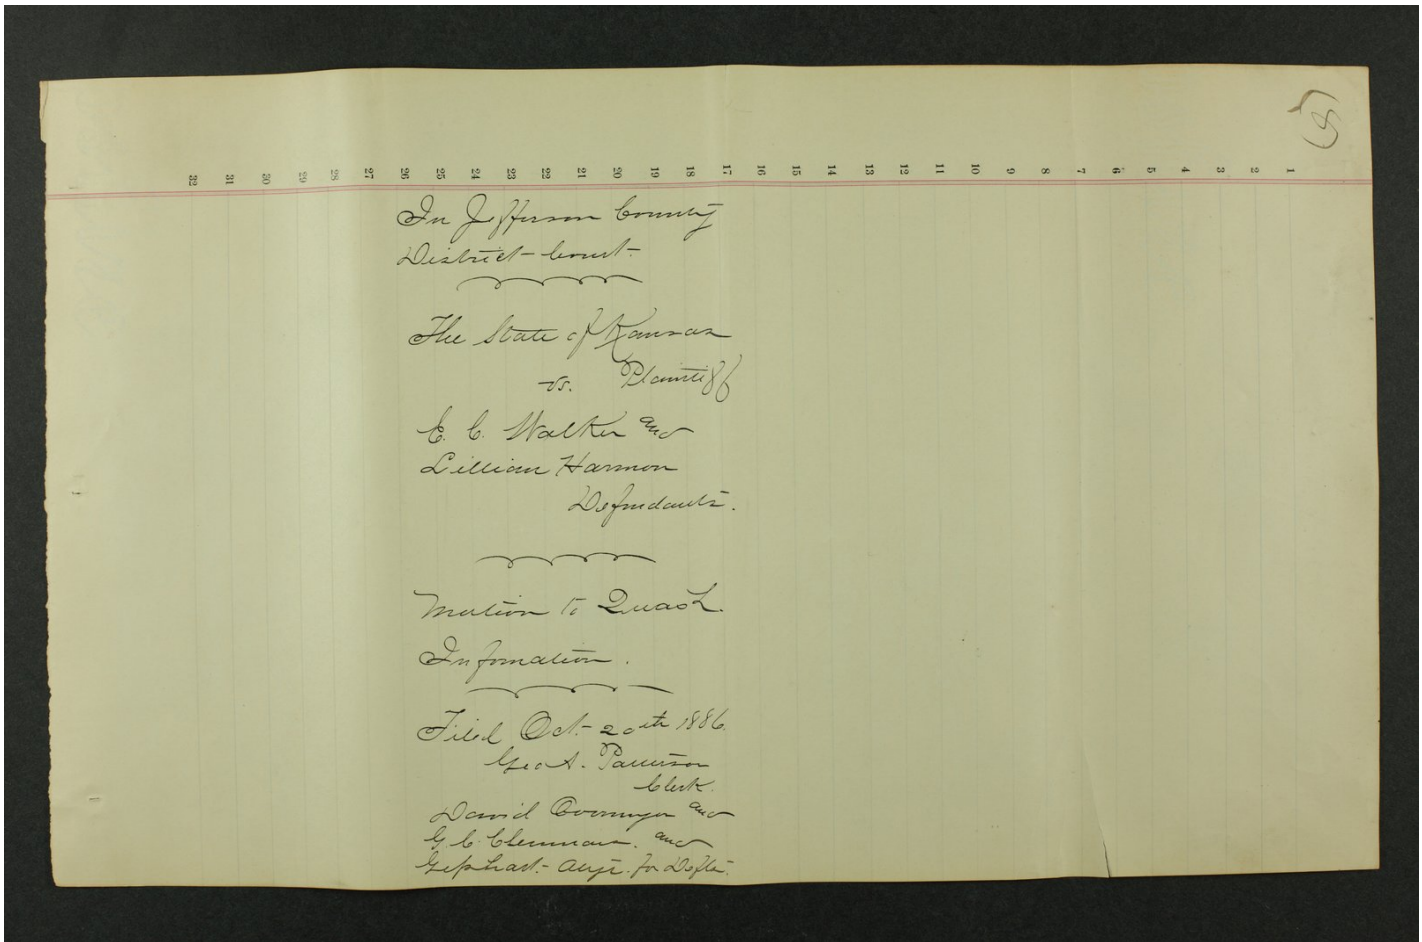 (8)
32 31 30 29 28 27 26 25 24 23 22 21 20 19 18 17 16 15 14 13 12 11 10 9 8 7 6 5 4 3 2 1
In Jefferson County
District Court.
The State of Kansas
vs. Plaintiff
E. C. Walker and
Lillian Harmon
Defendants.
Motion to Quash
Information.
Filed Oct. 20th 1886.
Geo A. Patterson
Clerk.
David Overmyer and
G. C. Clemmons. and
Gephart. Attys. for Defts.